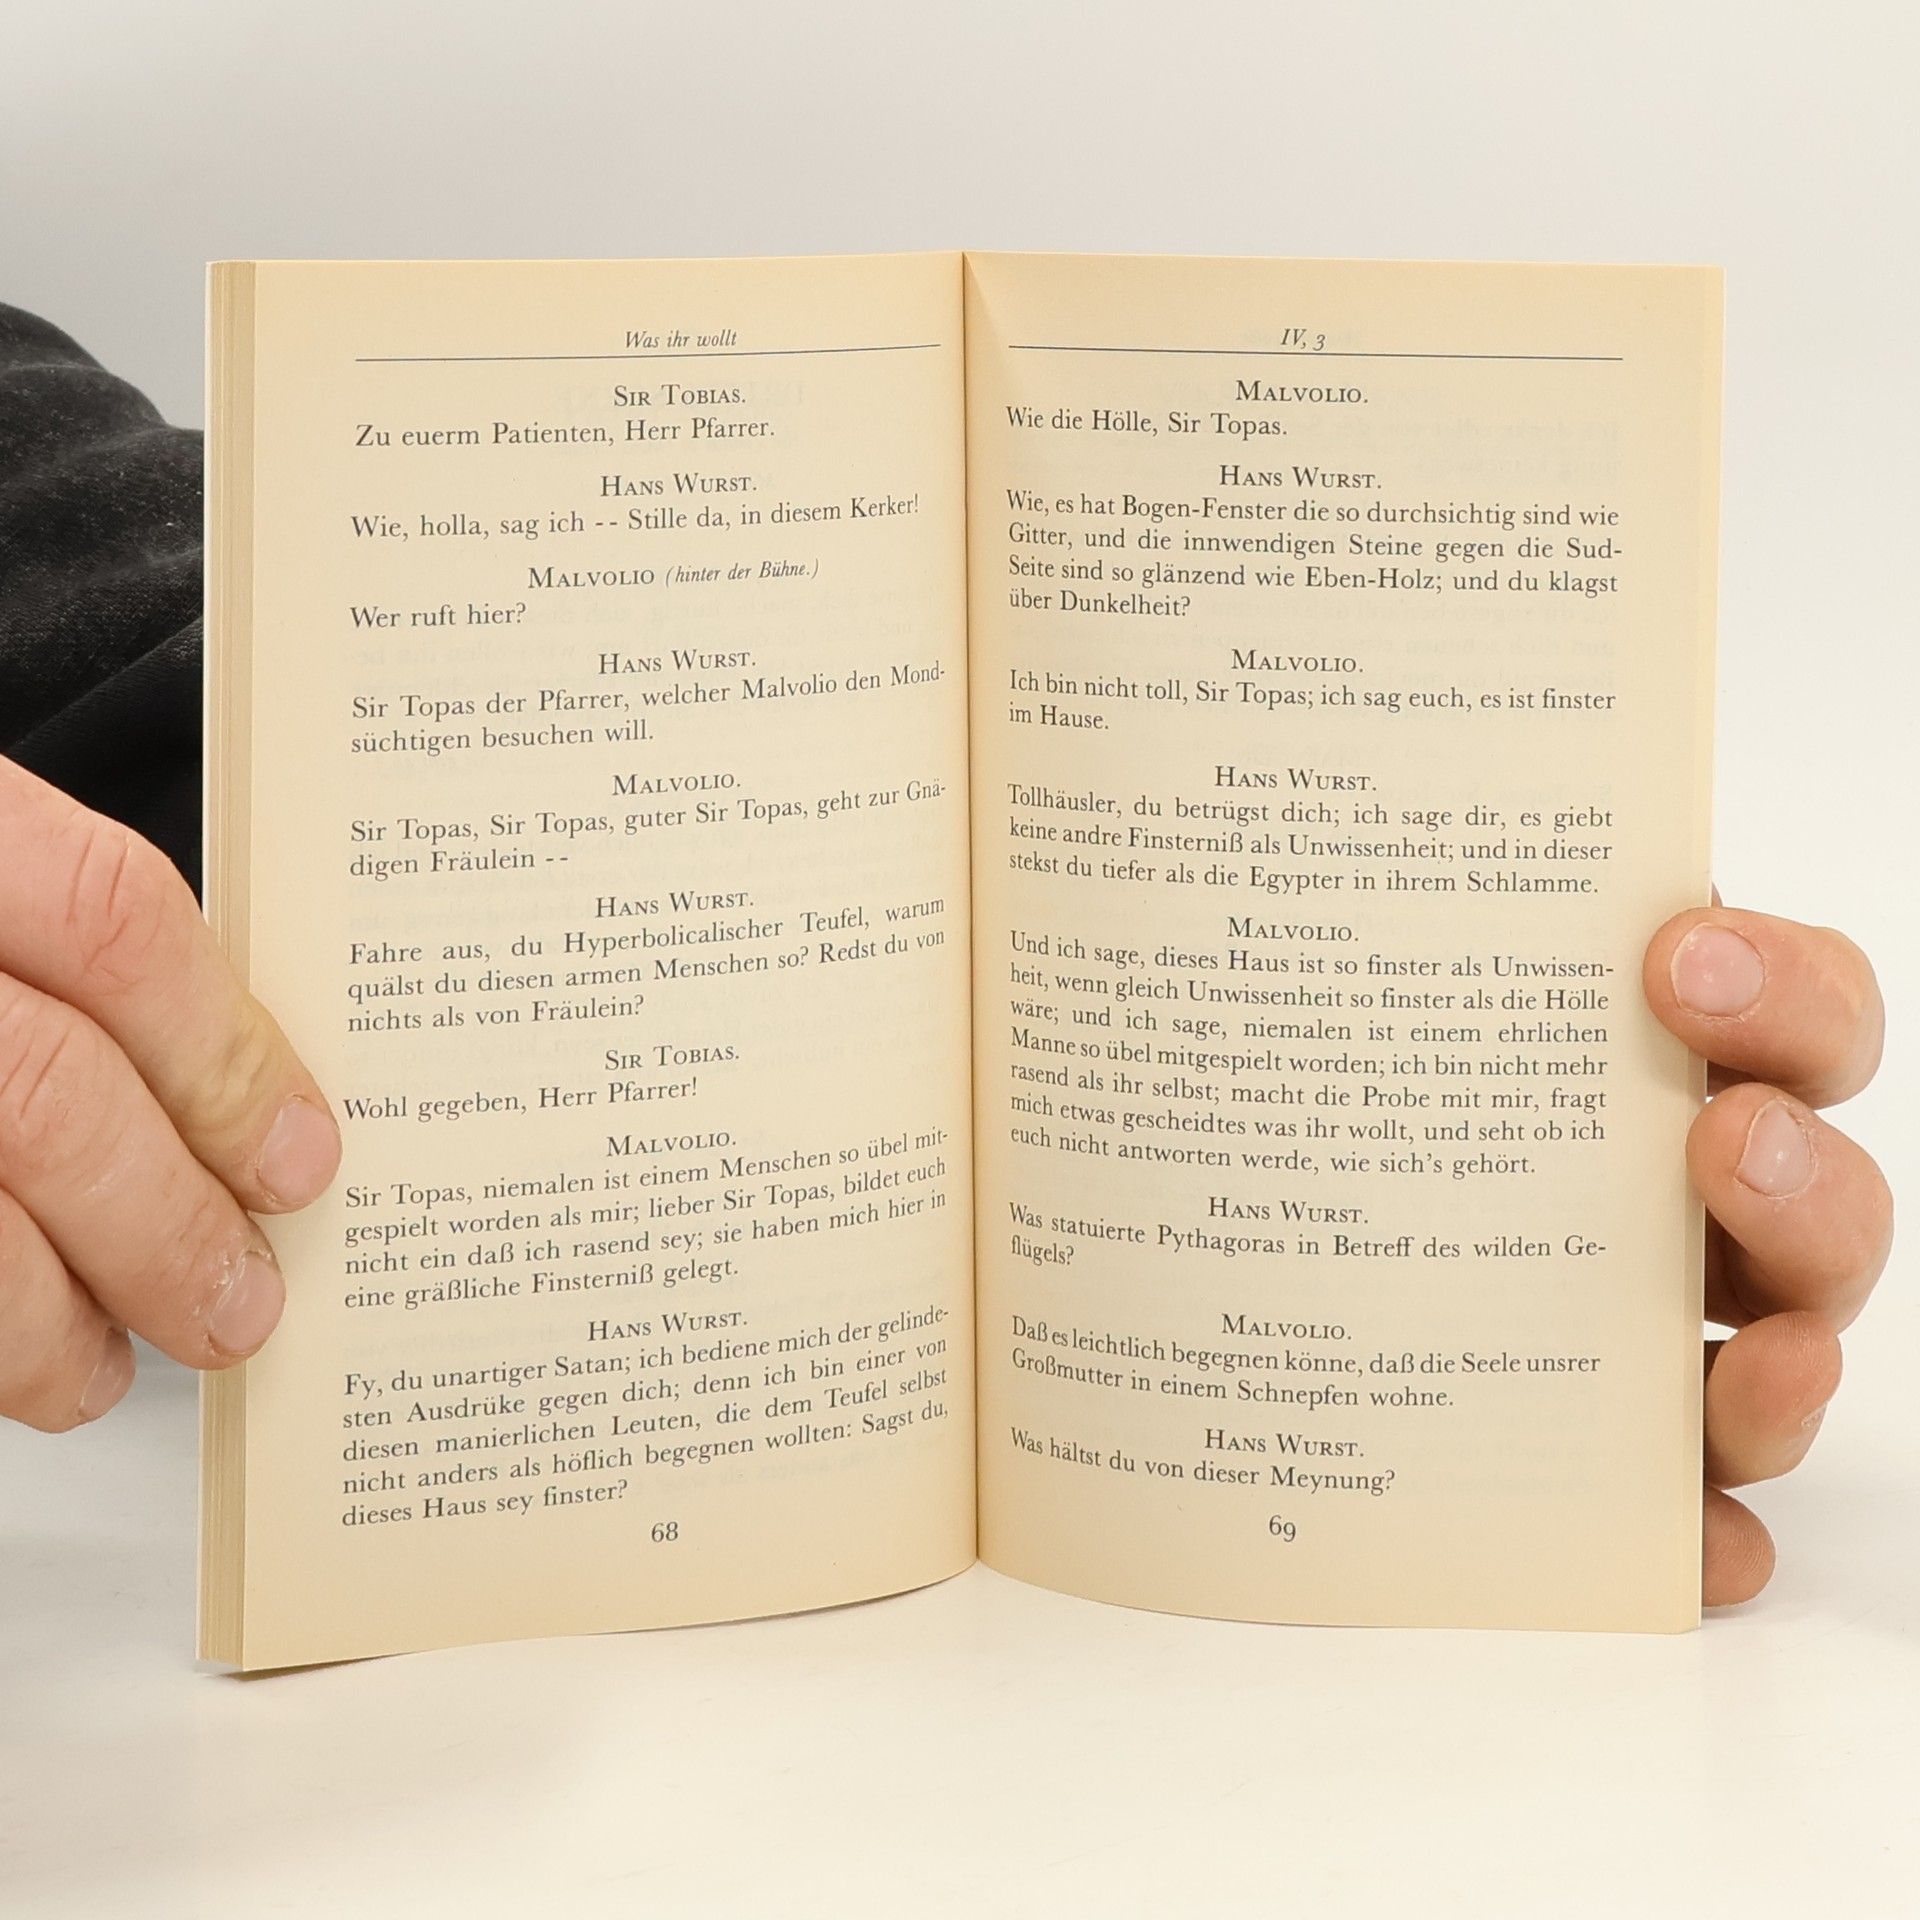 Was ihr wollt
SIR TOBIAS.
Zu euerm Patienten, Herr Pfarrer.
HANS WURST.
Wie, holla, sag ich -- Stille da, in diesem Kerker!
MALVOLIO (hinter der Bühne.)
Wer ruft hier?
HANS WURST.
Sir Topas der Pfarrer, welcher Malvolio den Mond-
süchtigen besuchen will.
MALVOLIO.
Sir Topas, Sir Topas, guter Sir Topas, geht zur Gnä-
digen Fräulein --
HANS WURST.
Fahre aus, du Hyperbolicalischer Teufel, warum
quälst du diesen armen Menschen so? Redst du von
nichts als von Fräulein?
SIR TOBIAS.
Wohl gegeben, Herr Pfarrer!
MALVOLIO.
Sir Topas, niemalen ist einem Menschen so übel mit-
gespielt worden als mir; lieber Sir Topas, bildet euch
nicht ein daß ich rasend sey; sie haben mich hier in
eine gräßliche Finsterniß gelegt.
HANS WURST.
Fy, du unartiger Satan; ich bediene mich der gelinde-
sten Ausdrüke gegen dich; denn ich bin einer von
diesen manierlichen Leuten, die dem Teufel selbst
nicht anders als höflich begegnen wollten: Sagst du,
dieses Haus sey finster?
68
IV, 3
MALVOLIO.
Wie die Hölle, Sir Topas.
HANS WURST.
Wie, es hat Bogen-Fenster die so durchsichtig sind wie
Gitter, und die innwendigen Steine gegen die Sud-
Seite sind so glänzend wie Eben-Holz; und du klagst
über Dunkelheit?
MALVOLIO.
Ich bin nicht toll, Sir Topas; ich sag euch, es ist finster
im Hause.
HANS WURST.
Tollhäusler, du betrügst dich; ich sage dir, es giebt
keine andre Finsterniß als Unwissenheit; und in dieser
stekst du tiefer als die Egypter in ihrem Schlamme.
MALVOLIO.
Und ich sage, dieses Haus ist so finster als Unwissen-
heit, wenn gleich Unwissenheit so finster als die Hölle
wäre; und ich sage, niemalen ist einem ehrlichen
Manne so übel mitgespielt worden; ich bin nicht mehr
rasend als ihr selbst; macht die Probe mit mir, fragt
mich etwas gescheidtes was ihr wollt, und seht ob ich
euch nicht antworten werde, wie sich's gehört.
HANS WURST.
Was statuierte Pythagoras in Betreff des wilden Ge-
flügels?
MALVOLIO.
Daß es leichtlich begegnen könne, daß die Seele unsrer
Großmutter in einem Schnepfen wohne.
HANS WURST.
Was hältst du von dieser Meynung?
69